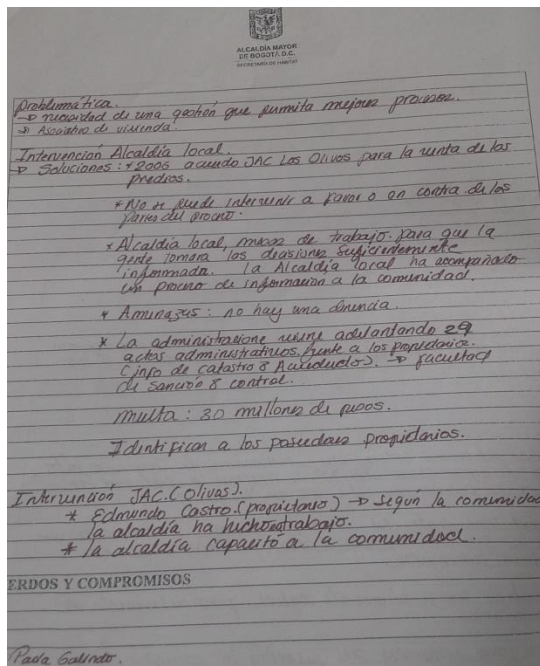 ALCALDÍA MAYOR
DE BOGOTÁ D.C.
SECRETARÍA DE HÁBITAT
Problemática.
→ necesidad de una gestión que permita mejores procesos.
→ Asociativo de vivienda.
Intervención Alcaldía local.
→ Soluciones: * 2006 acuerdo JAC Los Olivos para la venta de los
predios.
* No se puede intervenir a favor o en contra de las
partes del proceso.
* Alcaldía local, mesas de trabajo. para que la
gente tomara las decisiones suficientemente
informada. La Alcaldía local ha acompañado
un proceso de información a la comunidad.
* Amenazas: no hay una denuncia.
* La administracione viene adelantando 29
actos administrativos, frente a los propietarios.
(info de catastro & Acueducto). → facultad
de sanción & control.
multa: 30 millones de pesos.
Identifican a los poseedores propietarios.
Intervención JAC. (Olivos).
* Edmundo Castro. (propietario) → Según la comunidad
la alcaldía ha hecho trabajo.
* la alcaldía capacitó a la comunidad.
ERDOS Y COMPROMISOS
Paola Galindo.